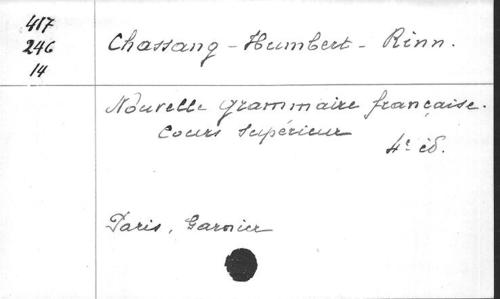 417
246
14
Chassang - Humbert - Rinn.
Nouvelle grammaire française.
Cours supérieur
4e éd.
Paris, Garnier